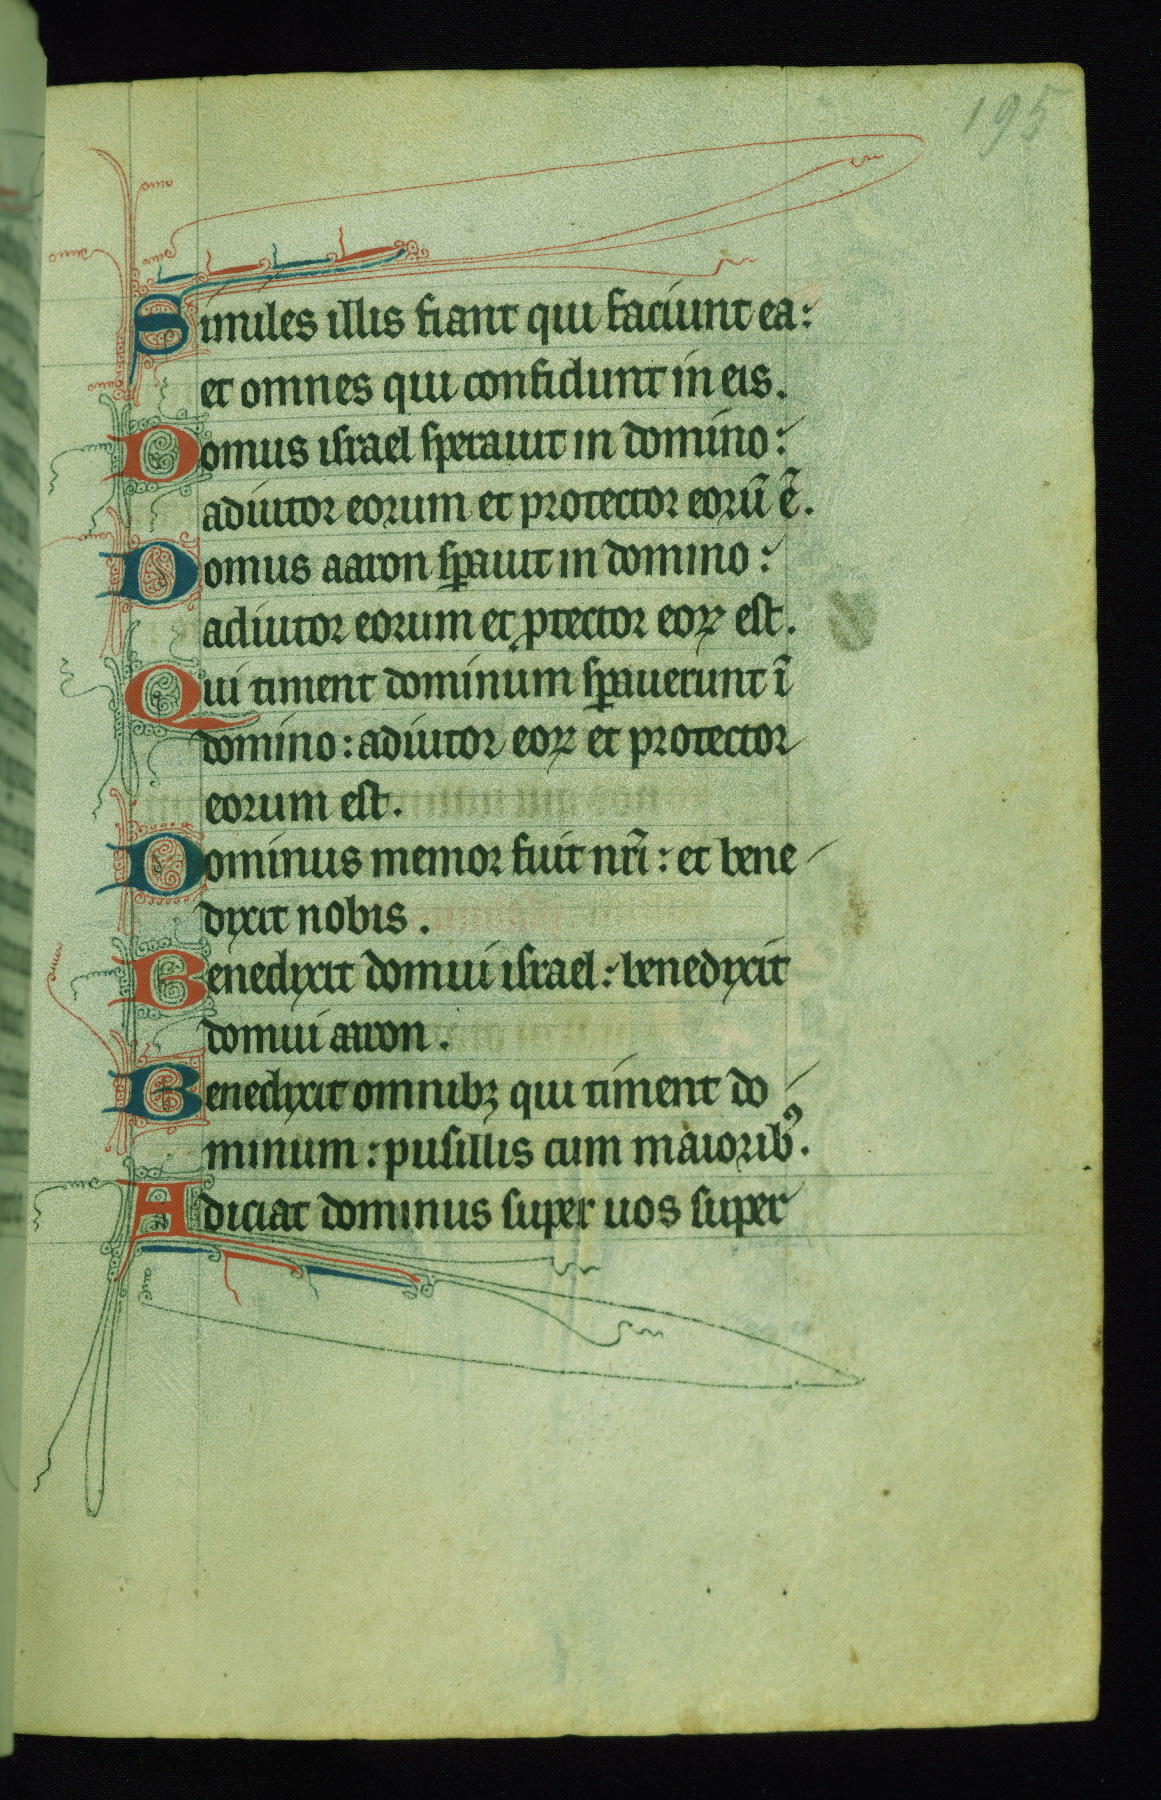 195
Similes illis fiant qui faciunt ea:
et omnes qui confidunt in eis.
Domus israel sperauit in domino:
adiutor eorum et protector eorū ē.
Domus aaron sꝑauit in domino:
adiutor eorum et ꝓtector eoꝝ est.
Qui timent dominum sꝑauerunt ī
domino: adiutor eoꝝ et protector
eorum est.
Dominus memor fuit nr̄i: et bene
dixit nobis.
Benedixit domui israel: benedixit
domui aaron.
Benedixit omnibꝫ qui timent do
minum: pusillis cum maioribꝰ.
Adiciat dominus super uos super